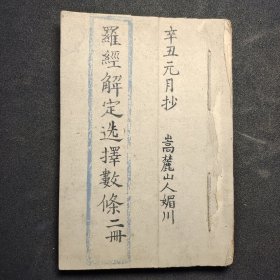 辛丑元月抄
嵩麓山人媚川
羅經解定选擇數條二冊